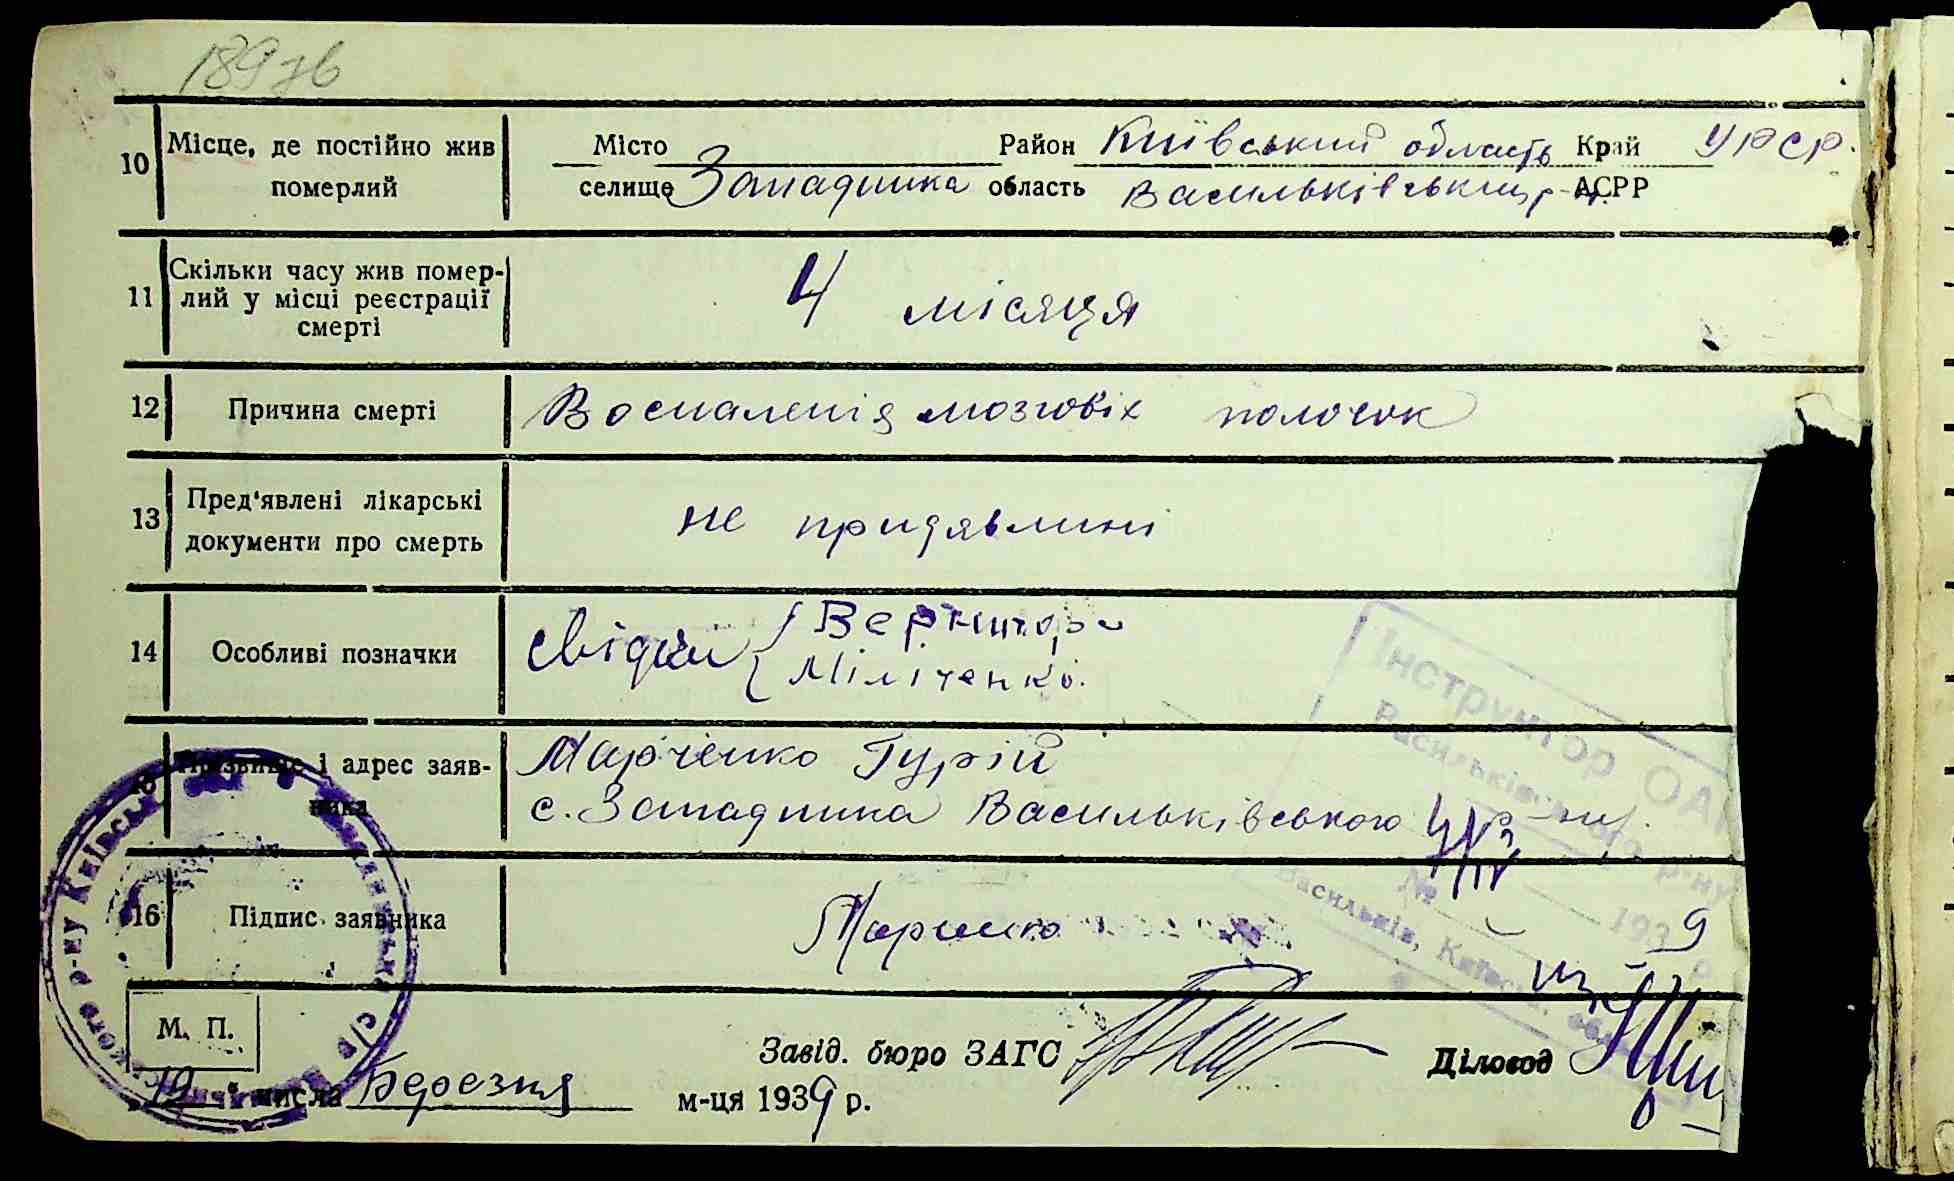 189зв
10 Місце, де постійно жив померлий Місто Район Київський область Край УРСР.
селище Западинка область Васильківський р-н. АСРР
11 Скільки часу жив помер-
лий у місці реєстрації
смерті
4 місяця
12 Причина смерті Воспаленія мозговіх полочок
13 Пред'явлені лікарські
документи про смерть
не придявлині
14 Особливі позначки свідки Вернигора
Мілітенко.
Прізвище і адрес заяв-
ника
Марченко Гурій
с. Западинка Васильківського р-ну.
16 Підпис заявника Марченко
Інструктор ОА
Васильківського р-ну
№ 1939
Васильків, Київськ.
М. П.
Завід. бюро ЗАГС Діловод
19 числа Березня м-ця 1939 р.
р-ну Київсь
с/р